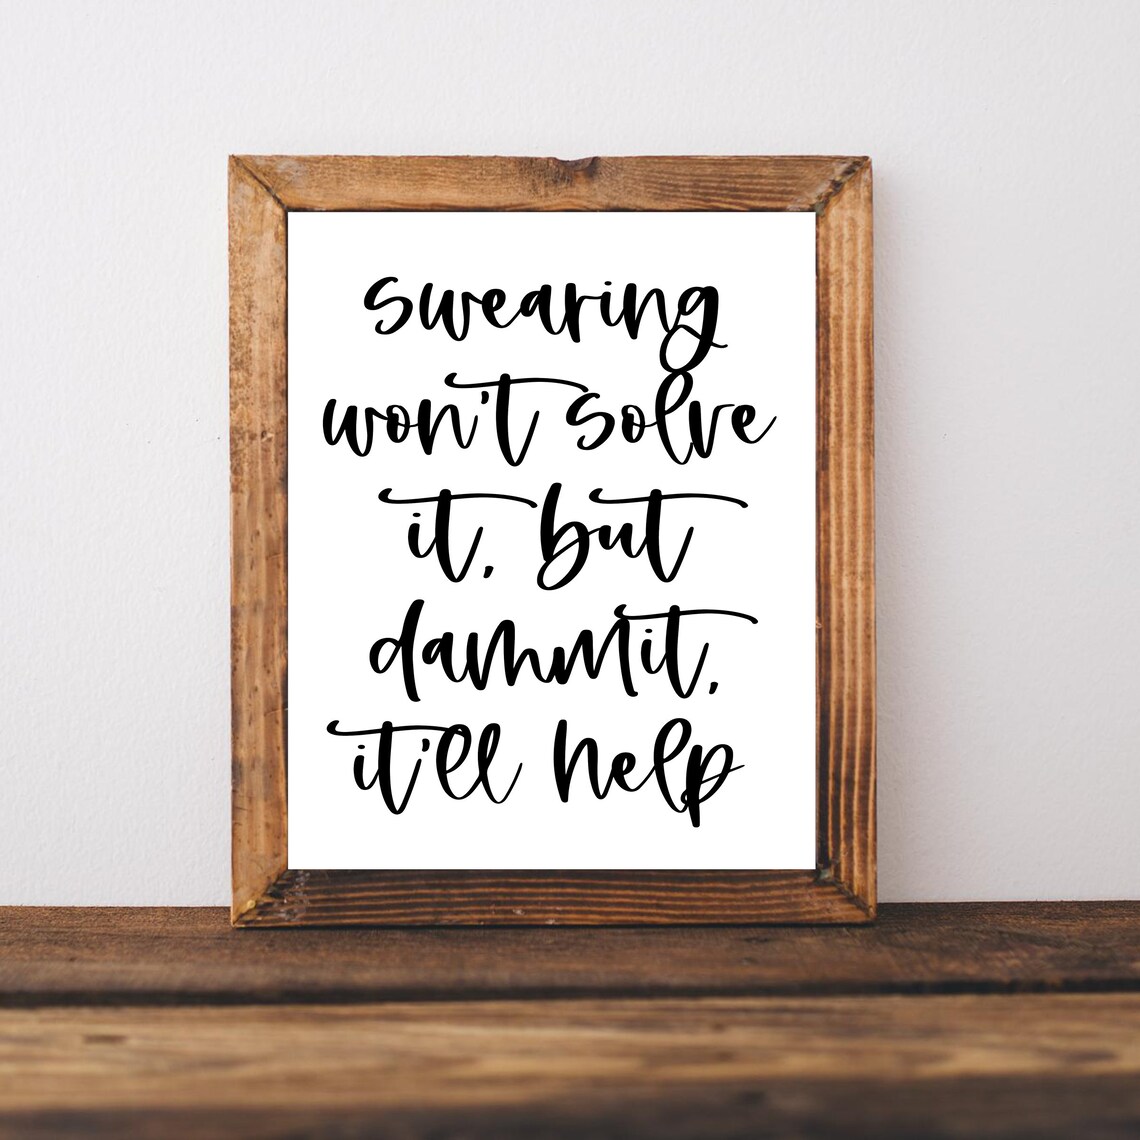 swearing
won't solve
it, but
dammit,
it'll help